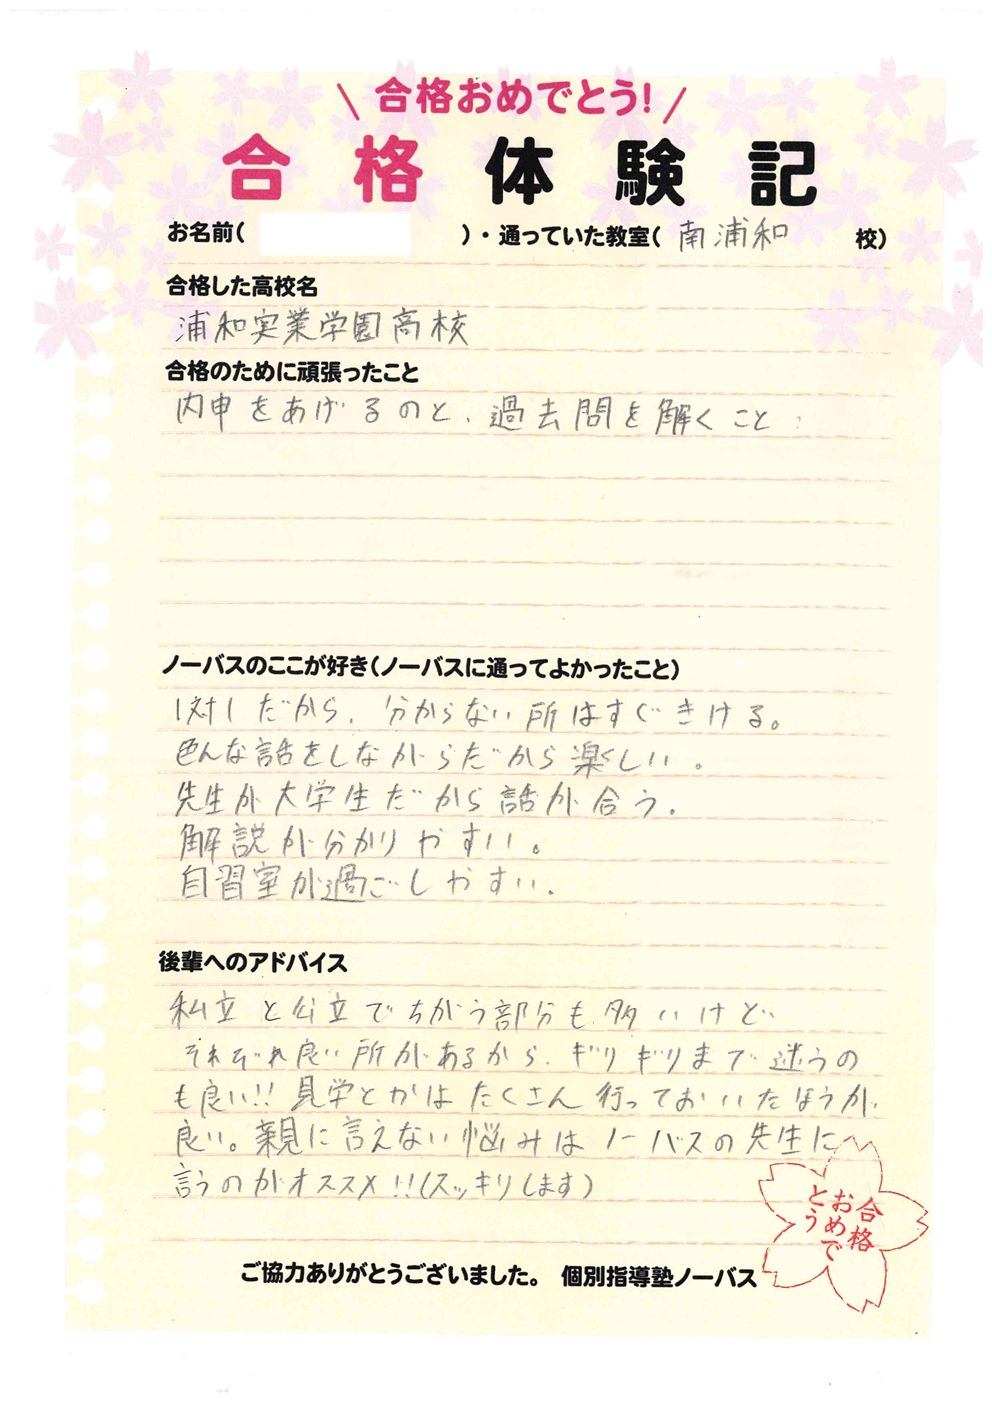 合格おめでとう!
合格体験記
お名前(　　　)・通っていた教室(南浦和　校)
合格した高校名
浦和実業学園高校
合格のために頑張ったこと
内申をあげるのと、過去問を解くこと
ノーバスのここが好き(ノーバスに通ってよかったこと)
1対1だから、分からない所はすぐきける。
色んな話をしながらだから楽しい。
先生が大学生だから話が合う。
解説が分かりやすい。
自習室が過ごしやすい。
後輩へのアドバイス
私立と公立でちがう部分も多いけど
それぞれ良い所があるから、ギリギリまで迷うの
も良い!!見学とかはたくさん行っておいたほうが
良い。親に言えない悩みはノーバスの先生に
言うのがオススメ!!(スッキリします)
合格
おめで
とう
ご協力ありがとうございました。 個別指導塾ノーバス